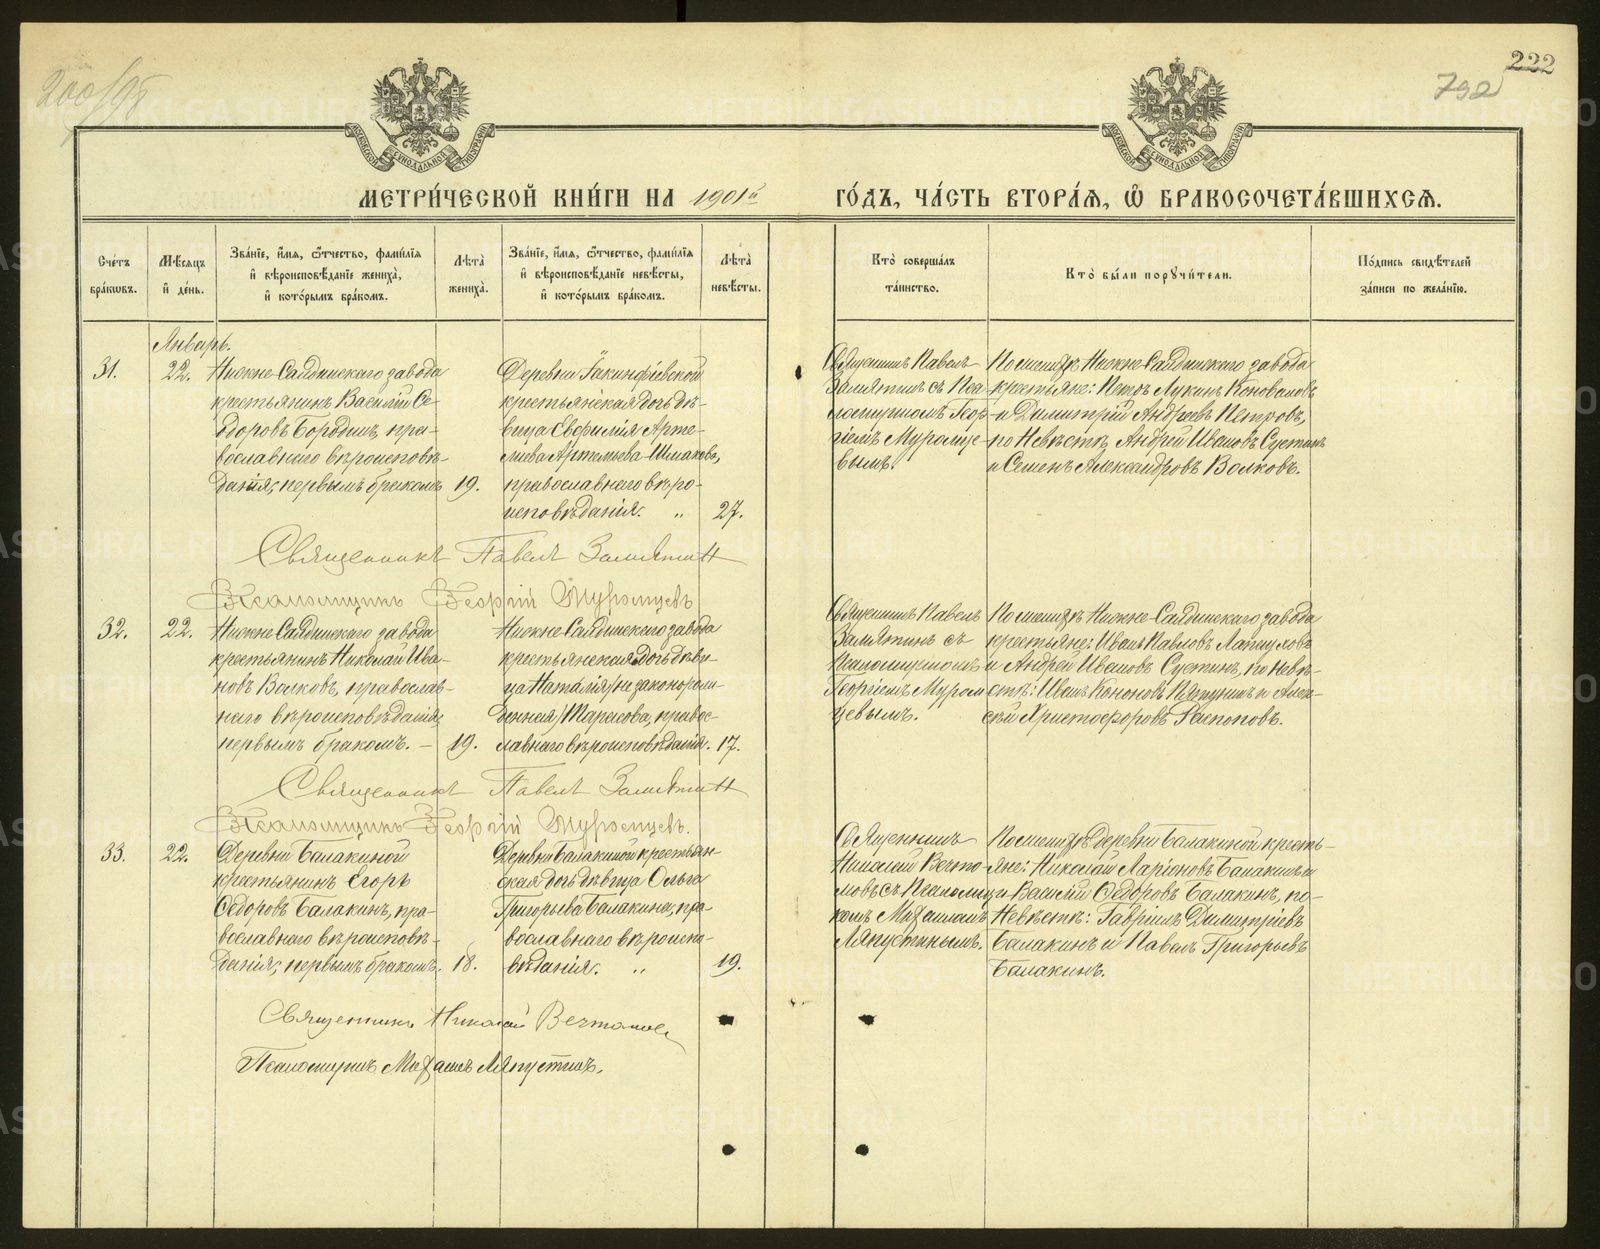 200/95
222
792
МОСКОВСКОЙ СѴНОДАЛЬНОЙ ТИПОГРАФІИ
МОСКОВСКОЙ СѴНОДАЛЬНОЙ ТИПОГРАФІИ
МЕТРИ́ЧЕСКОЙ КНИ́ГИ НА 1901й ГО́ДЪ, ЧА́СТЬ ВТОРА́Я, Ѽ БРАКОСОЧЕТА́ВШИХСѦ.
Сче́тъ бра́кѡвъ.
Мѣ́сяцъ й де́нь.
Зва́нїе, и́мя, ѻ́тчество, фами́лїя
й вѣроисповѣ́данїе жениха̀,
й кото́рымъ бра́комъ.
Лѣта̀ жениха̀.
Зва́нїе, и́мя, ѻ́тчество, фами́лїя
й вѣроисповѣ́данїе невѣ́сты,
й кото́рымъ бра́комъ.
Лѣта̀ невѣ́сты.
Кто̀ соверша́лъ
та́инство.
Кто̀ бы́ли порꙋчи́тели.
По́дпись свидѣ́телей
за́писи по жела́нїю.
Январь.
31.
22.
Нижне-Салдинскаго завода
крестьянинъ Василій Се-
доровъ Бородинъ, пра-
вославнаго вѣроисповѣ-
данія, первымъ бракомъ
19.
Деревни Іакинфіевской
крестьянская дочь дѣ-
вица Евфимія Арте-
миева Шмакова,
православнаго вѣро-
исповѣданія. „
27.
Священникъ Павелъ
Замятинъ съ Пса-
ломщикомъ Геор-
гіемъ Муромце-
вымъ.
По женихѣ Нижне-Салдинскаго завода
крестьяне: Петръ Лукинъ Коноваловъ
и Димитрій Андреевъ Петровъ,
по Невѣстѣ Андрей Ивановъ Суетинъ
и Семенъ Александровъ Волковъ.
Священникъ Павелъ Замятинъ
Псаломщикъ Георгій Муромцевъ
32.
22.
Нижне Салдинскаго завода
крестьянинъ Николай Ива-
новъ Волковъ, православ-
наго вѣроисповѣданія,
первымъ бракомъ. –
19.
Нижне Салдинскаго завода
крестьянская дочь дѣви-
ца Наталія /незаконорож-
денная/ Тарасова, правос-
лавнаго вѣроисповѣданія.
17.
Священникъ Павелъ
Замятинъ съ
Псаломщикомъ
Георгіемъ Муром
цевымъ.
По женихѣ Нижне-Салдинскаго завода
крестьяне: Иванъ Павловъ
и Андрей Ивановъ Суетинъ, по Невѣ-
стѣ: Иванъ Кононовъ и Алек-
сѣй Христофоровъ Распоповъ.
Священникъ Павелъ Замятинъ
Псаломщикъ Георгій Муромцевъ.
33.
22.
Деревни Балакиной
крестьянинъ Егоръ
Ѳедоровъ Балакинъ, пра-
вославнаго вѣроисповѣ-
данія, первымъ бракомъ.
18.
Деревни Балакиной крестьян-
ская дочь дѣвица Ольга
Григорьева Балакина, пра-
вославнаго вѣроиспо-
вѣданія. „
19.
Священникъ
Николай Вечто-
мовъ съ Псаломщи-
комъ Михаиломъ
Ляпустинымъ.
По женихѣ деревни Балакиной кресть-
яне: Николай Ларіоновъ Балакинъ
и Василій Ѳедоровъ Балакинъ, по
Невѣстѣ: Гавріилъ Димитріевъ
Балакинъ и Павелъ Григорьевъ
Балакинъ.
Священникъ Николай Вечтомовъ
Псаломщикъ Михаилъ Ляпустинъ.
METRIKI.GASO-URAL.RU